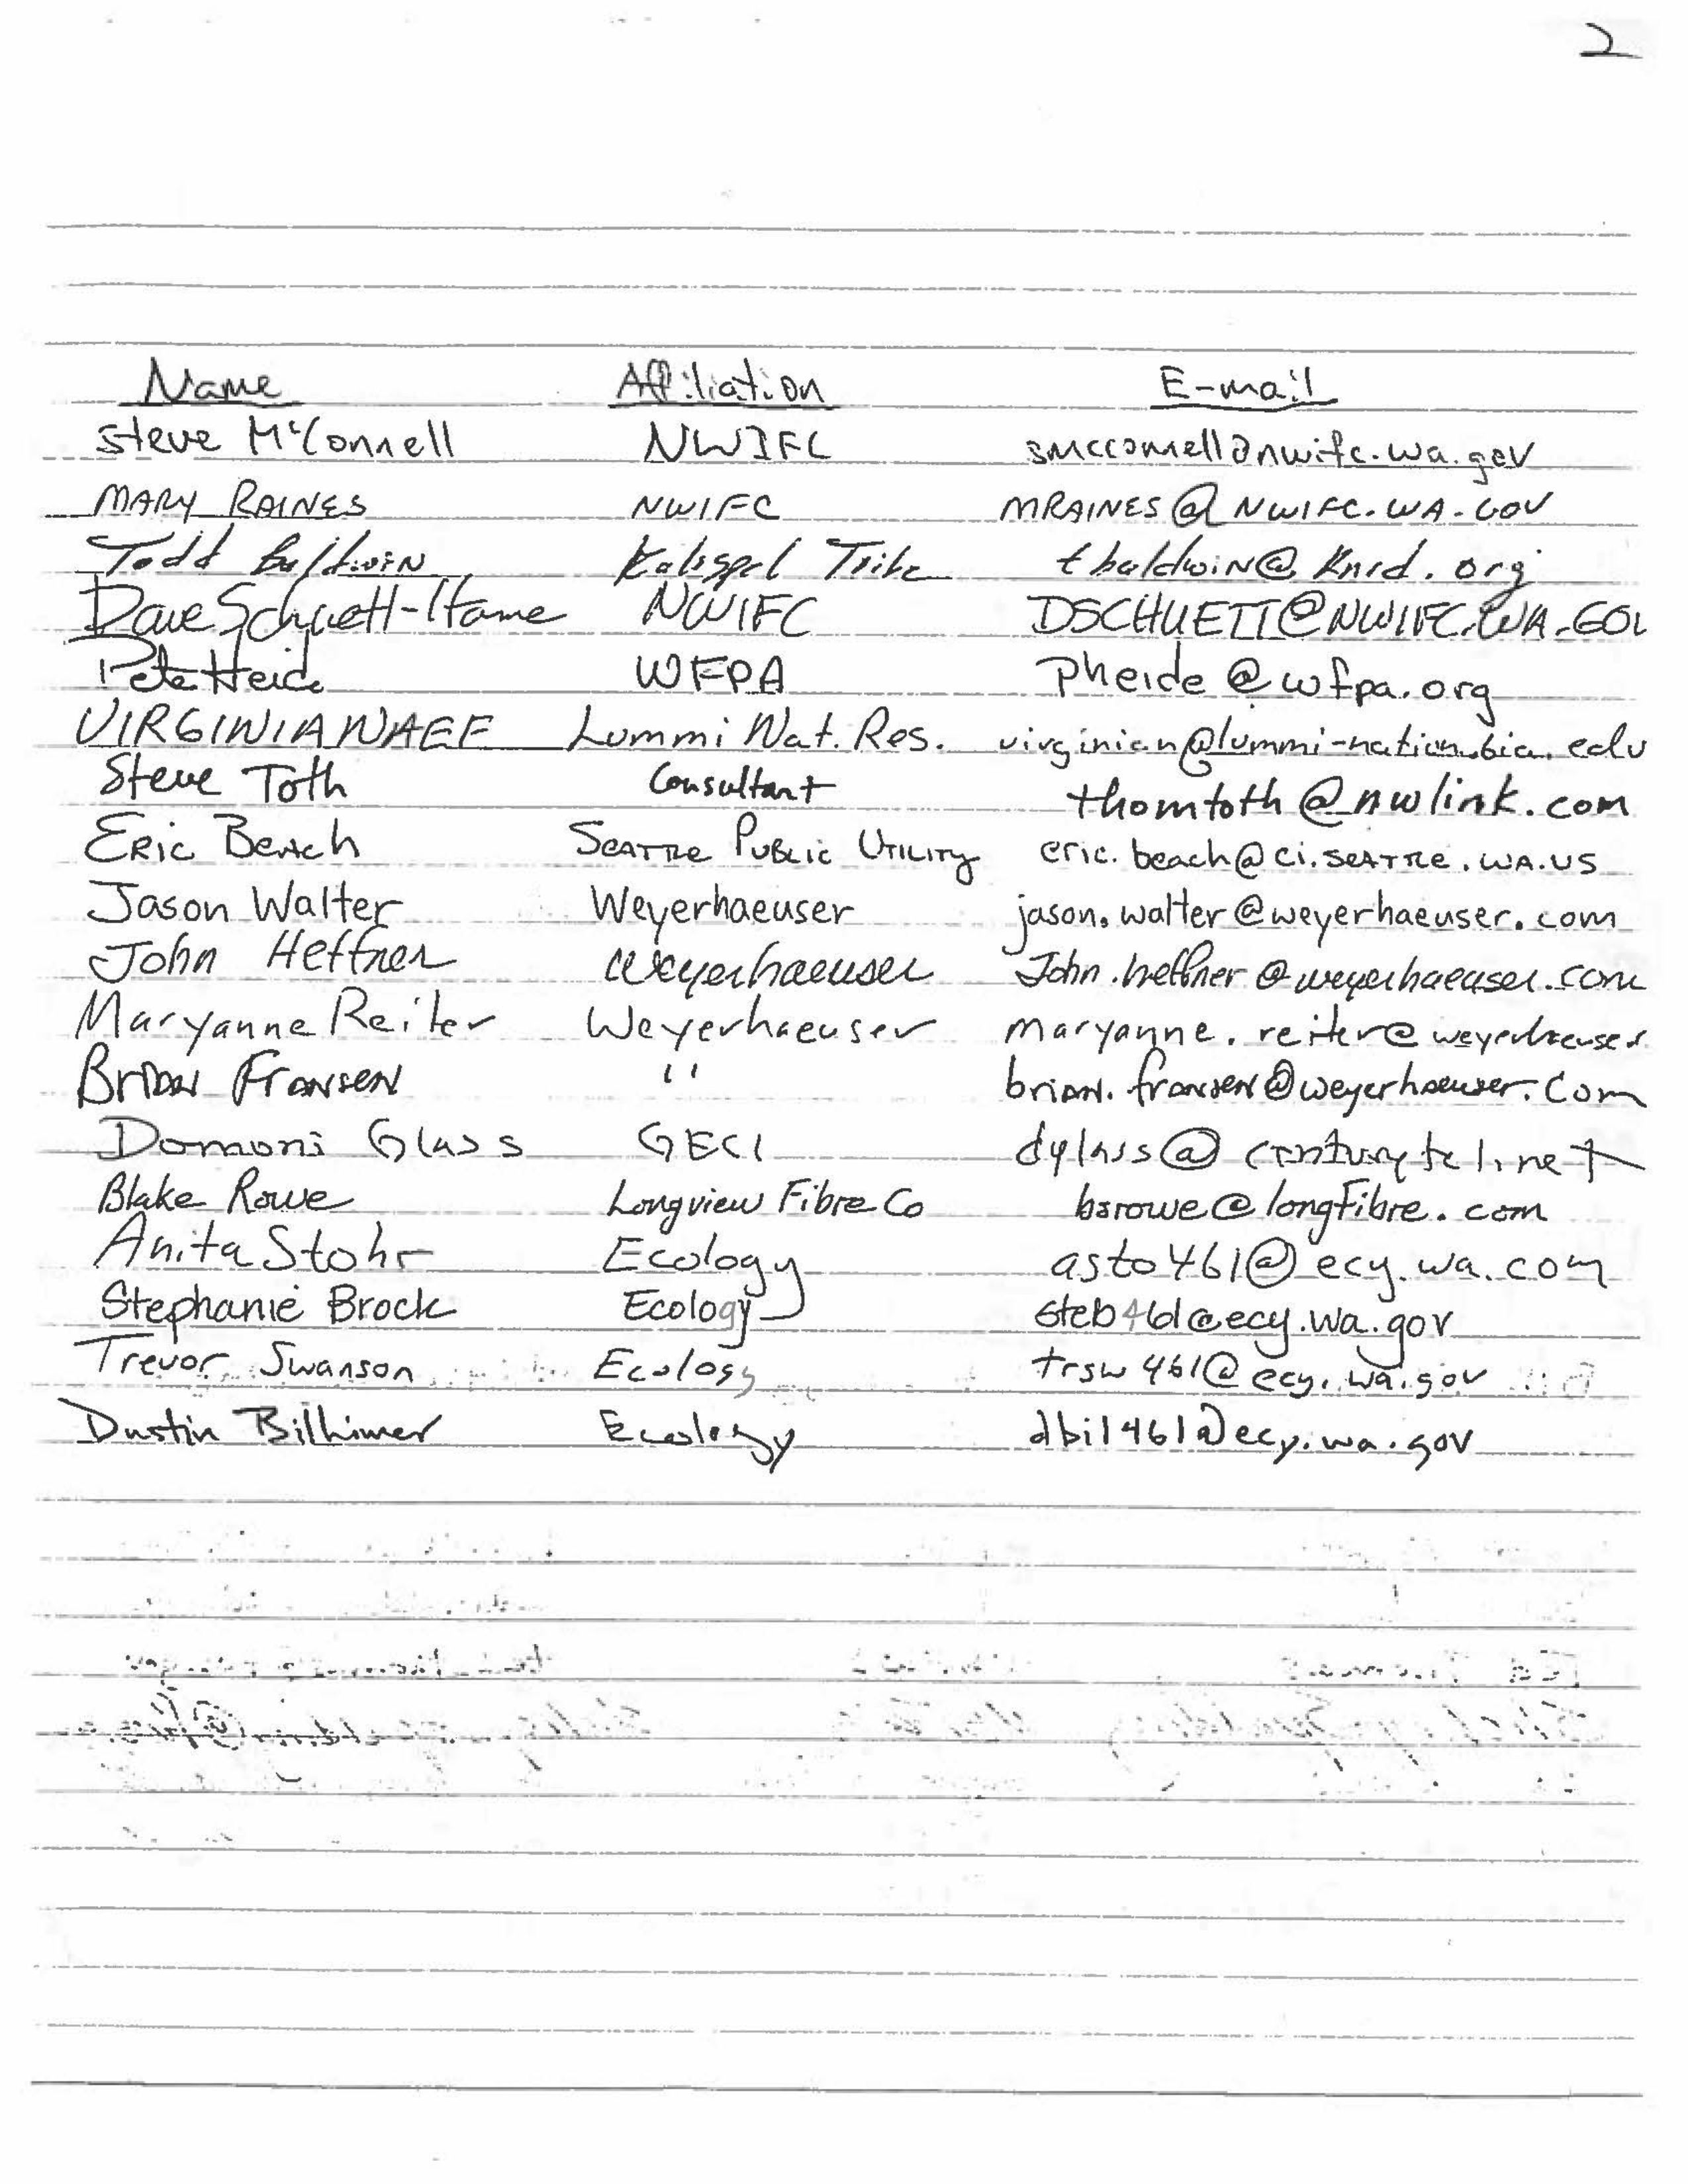 2
Name Affiliation E-mail
Steve McConnell NWIFC smcconnell@nwifc.wa.gov
MARY RAINES NWIFC MRAINES@NWIFC.WA.GOV
Todd Baldwin Kalispel Tribe tbaldwin@knrd.org
Dave Schuett-Hame NWIFC DSCHUETT@NWIFC.WA.GOV
Pete Heide WFPA Pheide@wfpa.org
VIRGINIA NAEF Lummi Nat. Res. virginian@lummi-nation.bia.edu
Steve Toth Consultant thomtoth@nwlink.com
ERIC BEACH SEATTLE PUBLIC UTILITY eric.beach@ci.SEATTLE.WA.US
Jason Walter Weyerhaeuser jason.walter@weyerhaeuser.com
John Heffner Weyerhaeuser John.heffner@weyerhaeuser.com
Maryanne Reiter Weyerhaeuser maryanne.reiter@weyerhaeuser
Brian Fransen " brian.fransen@weyerhaeuser.com
Domoni Glass GECI dglass@centurytel.net
Blake Rowe Longview Fibre Co bsrowe@longfibre.com
Anita Stohr Ecology asto461@ecy.wa.com
Stephanie Brock Ecology steb461@ecy.wa.gov
Trevor Swanson Ecology trsw461@ecy.wa.gov
Dustin Bilhimer Ecology dbil461@ecy.wa.gov